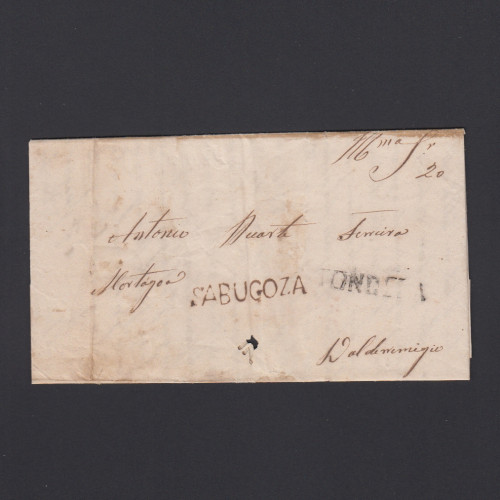 Illma Sr
20
Antonio Duarte Ferreira
Mortagoa
SABUGOZA TONDELLA
Valderremigio